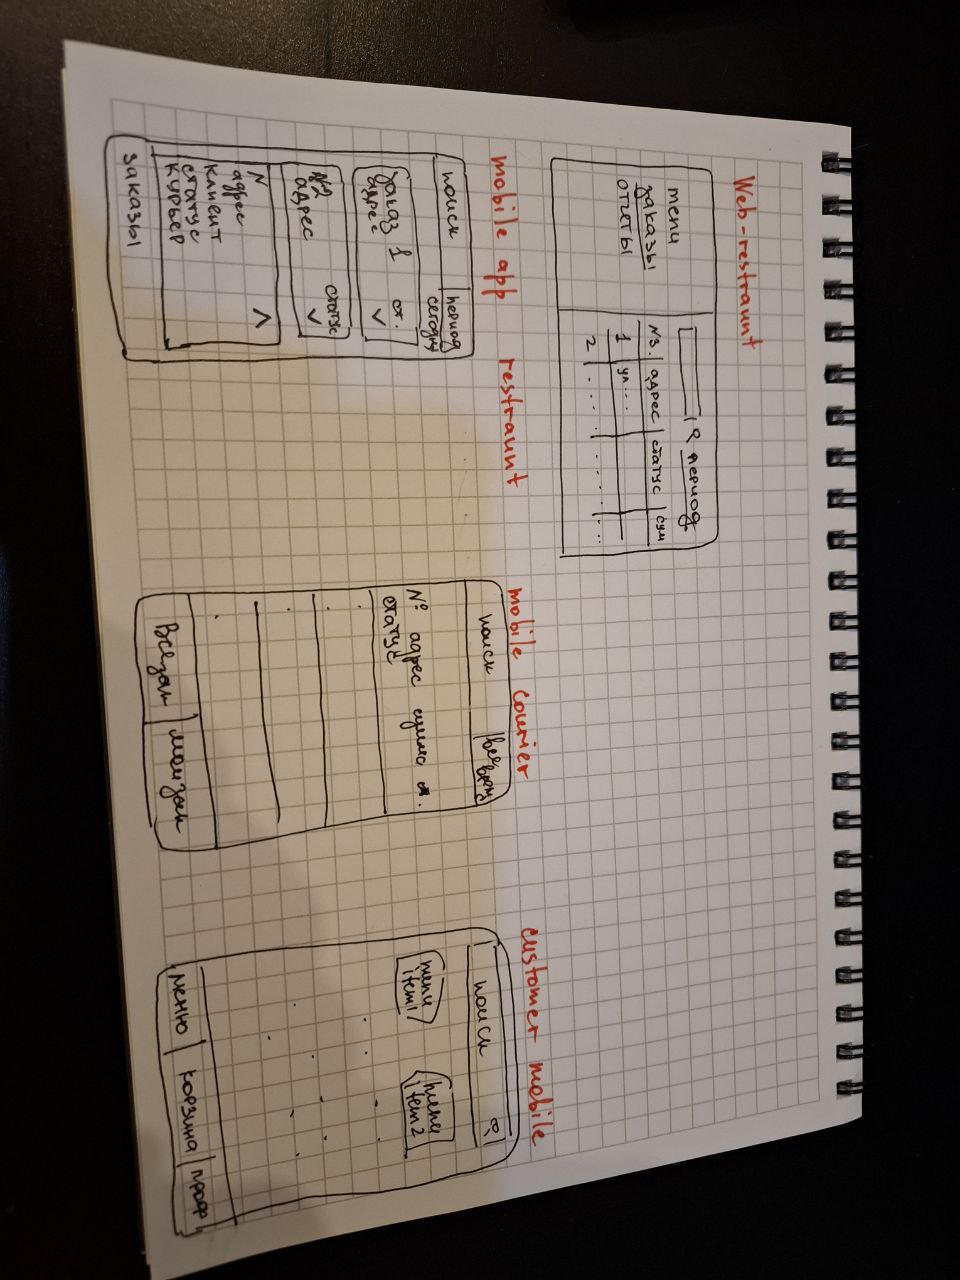 Web-restraunt
menu
заказы
отчеты
период
N з. адрес статус сум
1 ул...
2 . . . .
mobile app restraunt
поиск период
сегодня
заказ 1 ст.
адрес
№2 статус
адрес
N
адрес
клиент
статус
курьер
заказы
mobile courier
поиск все
время
№ адрес сумма
статус
Все зак мои зак
customer mobile
поиск
menu
item1
menu
item2
меню корзина проф